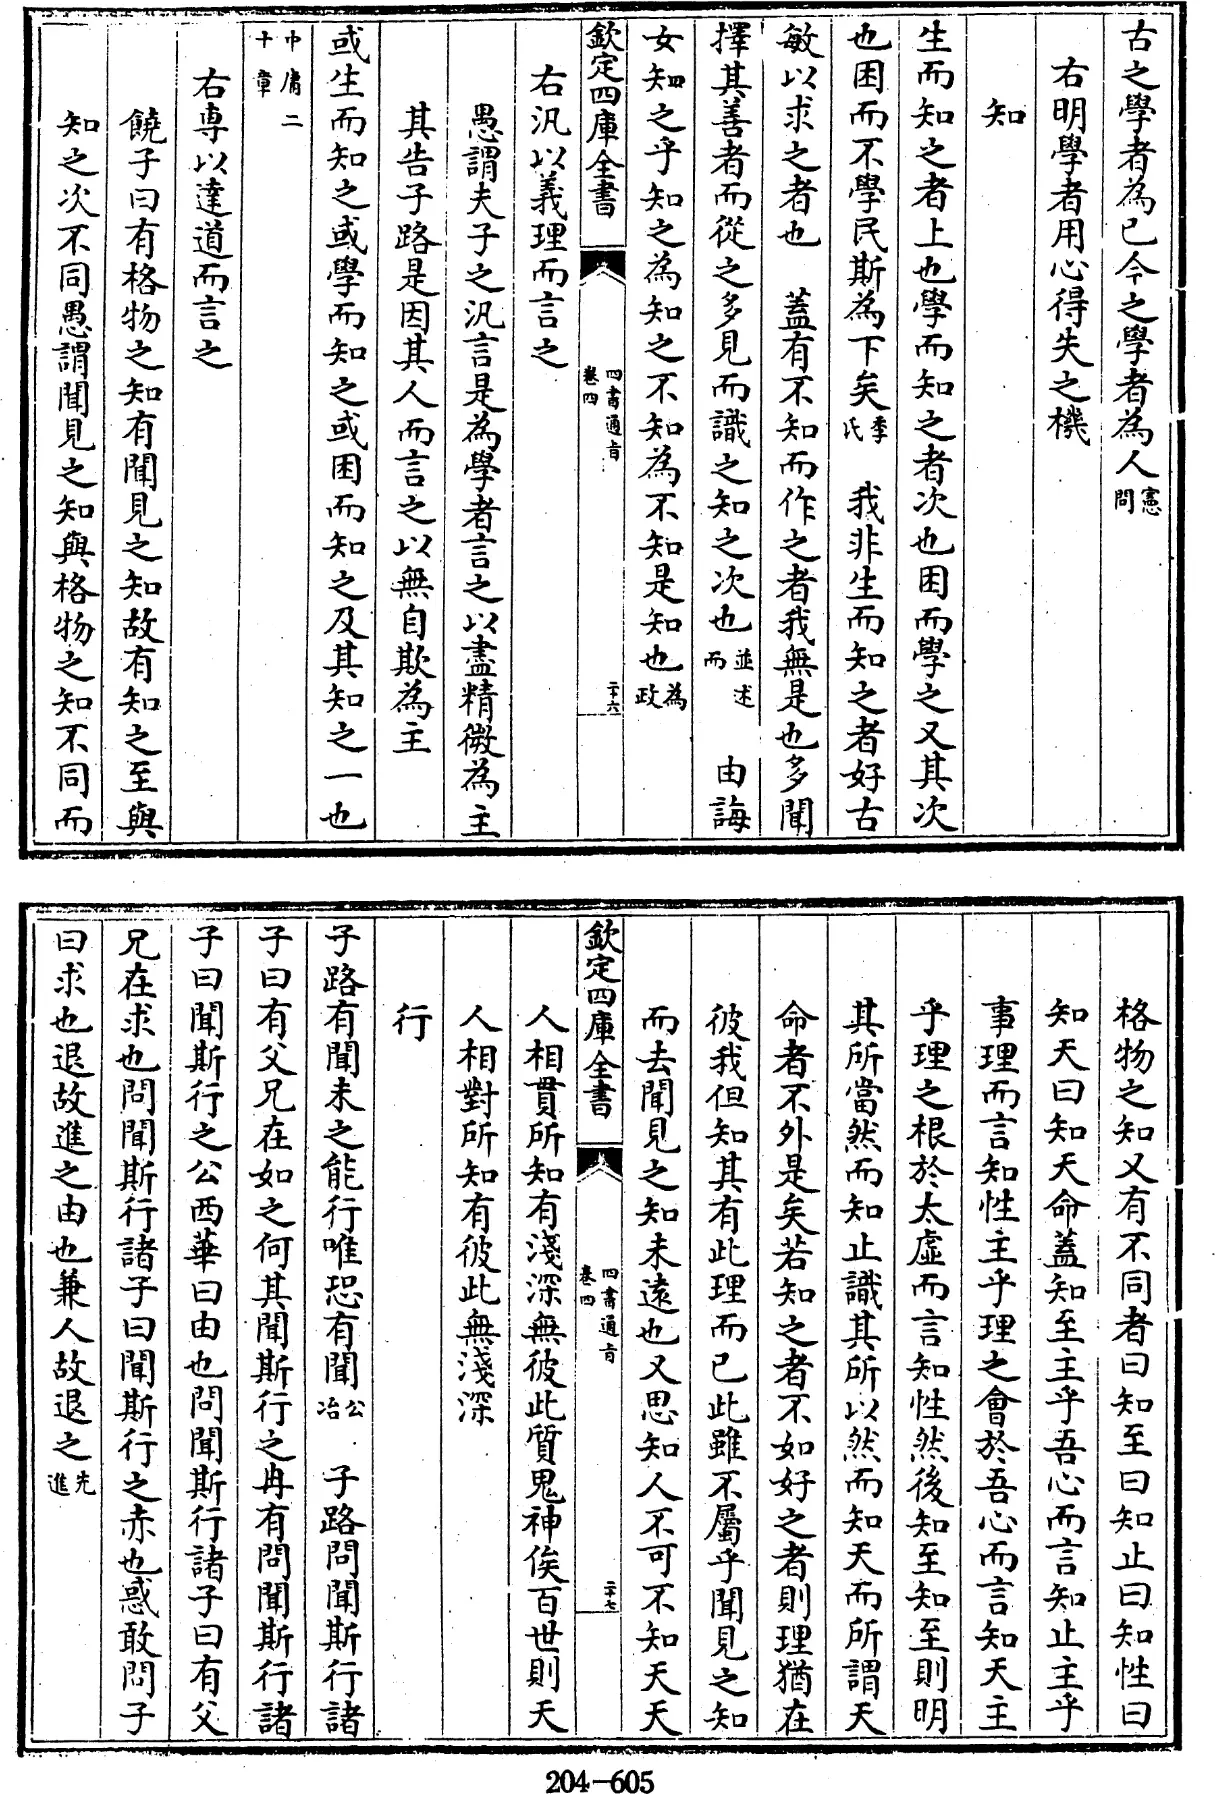 古之學者為己今之學者為人憲問
右明學者用心得失之機
知
生而知之者上也學而知之者次也困而學之又其次
也困而不學民斯為下矣季氏　我非生而知之者好古
敏以求之者也　蓋有不知而作之者我無是也多聞
擇其善者而從之多見而識之知之次也並述而　由誨
女知之乎知之為知之不知為不知是知也為政
欽定四庫全書
四書通旨
卷四
二十六
右汎以義理而言之
愚謂夫子之汎言是為學者言之以盡精微為主
其告子路是因其人而言之以無自欺為主
或生而知之或學而知之或困而知之及其知之一也
中庸二十章
右専以達道而言之
饒子曰有格物之知有聞見之知故有知之至與
知之次不同愚謂聞見之知與格物之知不同而
格物之知又有不同者曰知至曰知止曰知性曰
知天曰知天命蓋知至主乎吾心而言知止主乎
事理而言知性主乎理之會於吾心而言知天主
乎理之根於太虛而言知性然後知至知至則明
其所當然而知止識其所以然而知天而所謂天
命者不外是矣若知之者不如好之者則理猶在
彼我但知其有此理而已此雖不屬乎聞見之知
而去聞見之知未遠也又思知人不可不知天天
欽定四庫全書
四書通旨
卷四
二十七
人相貫所知有淺深無彼此質鬼神俟百世則天
人相對所知有彼此無淺深
行
子路有聞未之能行唯恐有聞公冶　子路問聞斯行諸
子曰有父兄在如之何其聞斯行之冉有問聞斯行諸
子曰聞斯行之公西華曰由也問聞斯行諸子曰有父
兄在求也問聞斯行諸子曰聞斯行之赤也惑敢問子
曰求也退故進之由也兼人故退之先進
204-605